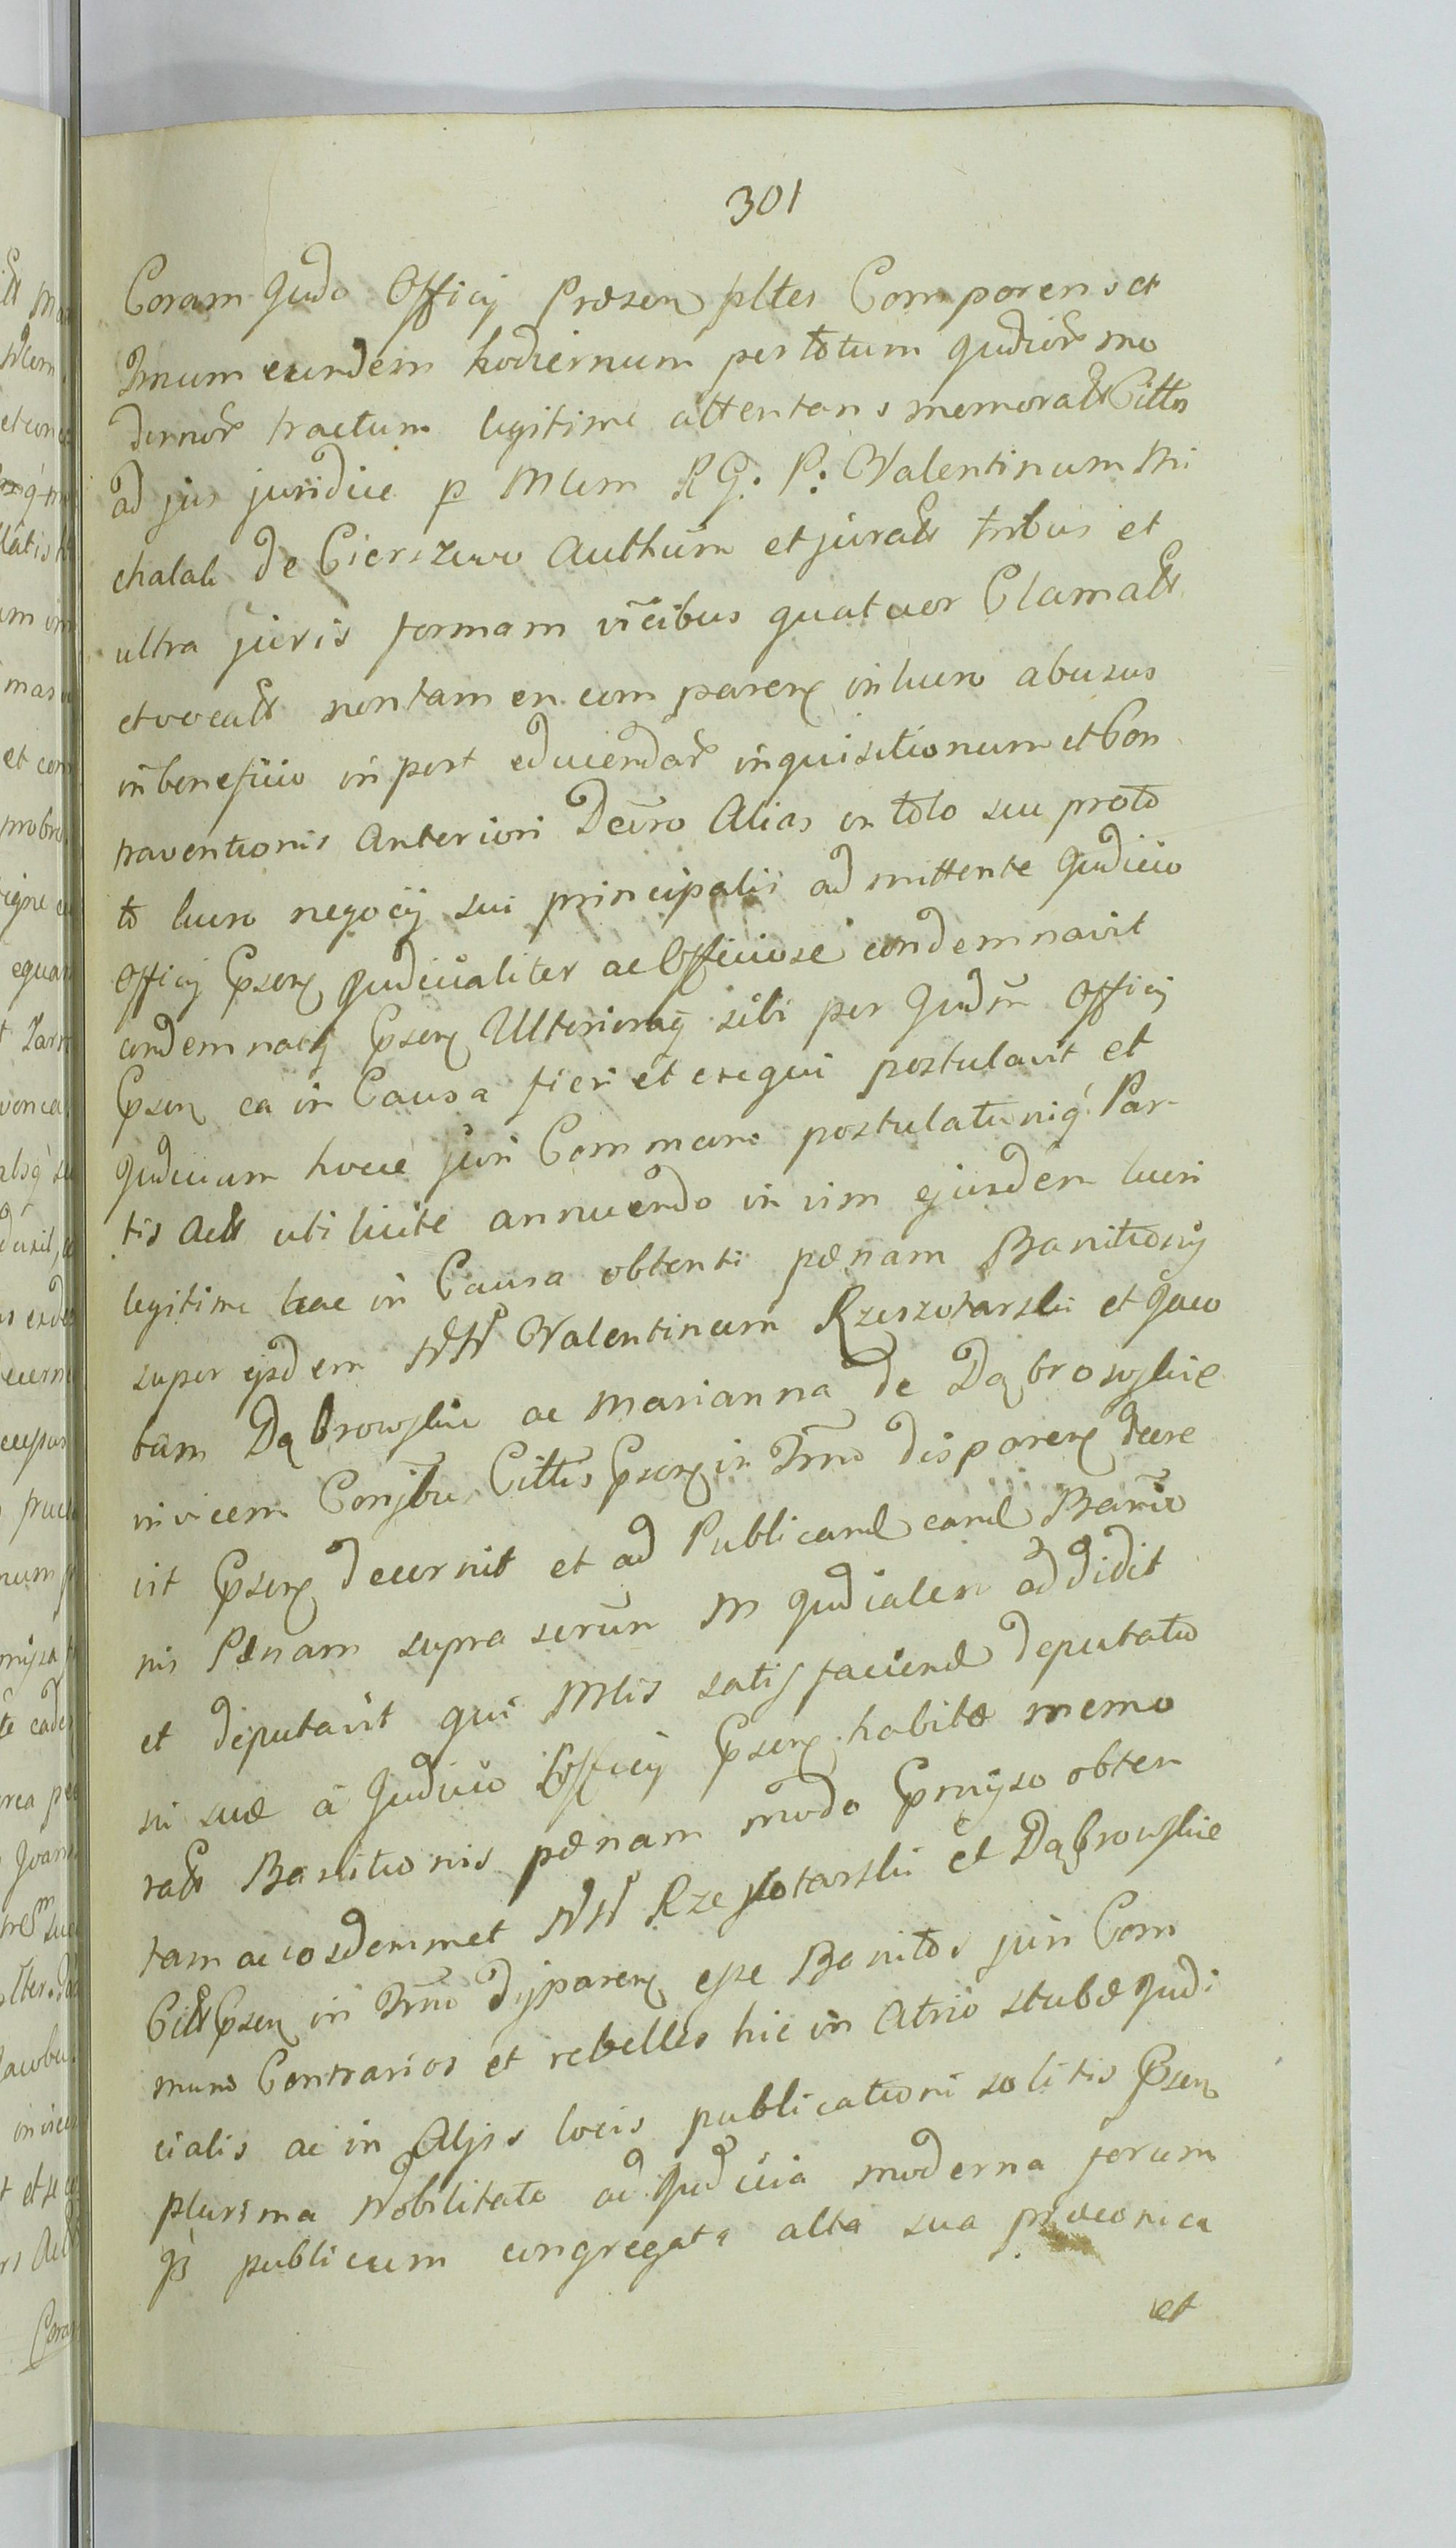 301
Coram Judo Officij Præsen pltes Comparens et
Tmum eundem hodiernum per totum Judior mo
dernor tractum legitime attentans memorat Cittos
ad jus juridice p Mlem R G: P: Valentinum Mi
chalak de Cierszewo Authum et jurat tribus et
ultra juris formam vicibus quatuor Clamat
et vocat non tamen comparen in lucro abusus
in beneficio in post educendar inquisitionum et Con
traventionis Anteriori Decro Alias in toto seu proto
to lucro negocij sui principalis admittente Judicio
Officij Epsen Judicialiter ac Officiose condemnavit
condemnatq Epsen Ulteriorq sibi per Judm Officij
Epsen ea in Causa fieri et exequi postulavit et
Judicium hocce juri Communi postulationiq Par-
tis Act uti licite annuendo in vim ejusdem lucri
legitime hac in Causa obtenti pænam Banitionis
super ejsdem NN Valentinum Rzeszotarski et Jaco
bum Dąbrowskie ac Marianna de Dąbrowskie
invicem Conjbus Cittis Epsen in Tmno disparen decre
vit Epsen decernit et ad Publicand eand Banitio
nis Pænam supra scrum M Judicialem addidit
et deputavit qui Mlis satisfaciend deputatio
ni suæ à Judicio Officij Epsen habitæ memo
rat Banitionis pænam modo Epmisso obten
tam ac eosdemmet NN Rzeszotarski et Dąbrowskie
Citt Epsen in Tmno disparen esse Banitos juri Com
muni Contrarios et rebelles hic in Atrio stubæ Judi
cialis ac in Alijs locis publicationi solitis Epsen
plurima Nobilitate ad Judicia moderna forum
q3 publicum congregata alta sua præconica
et